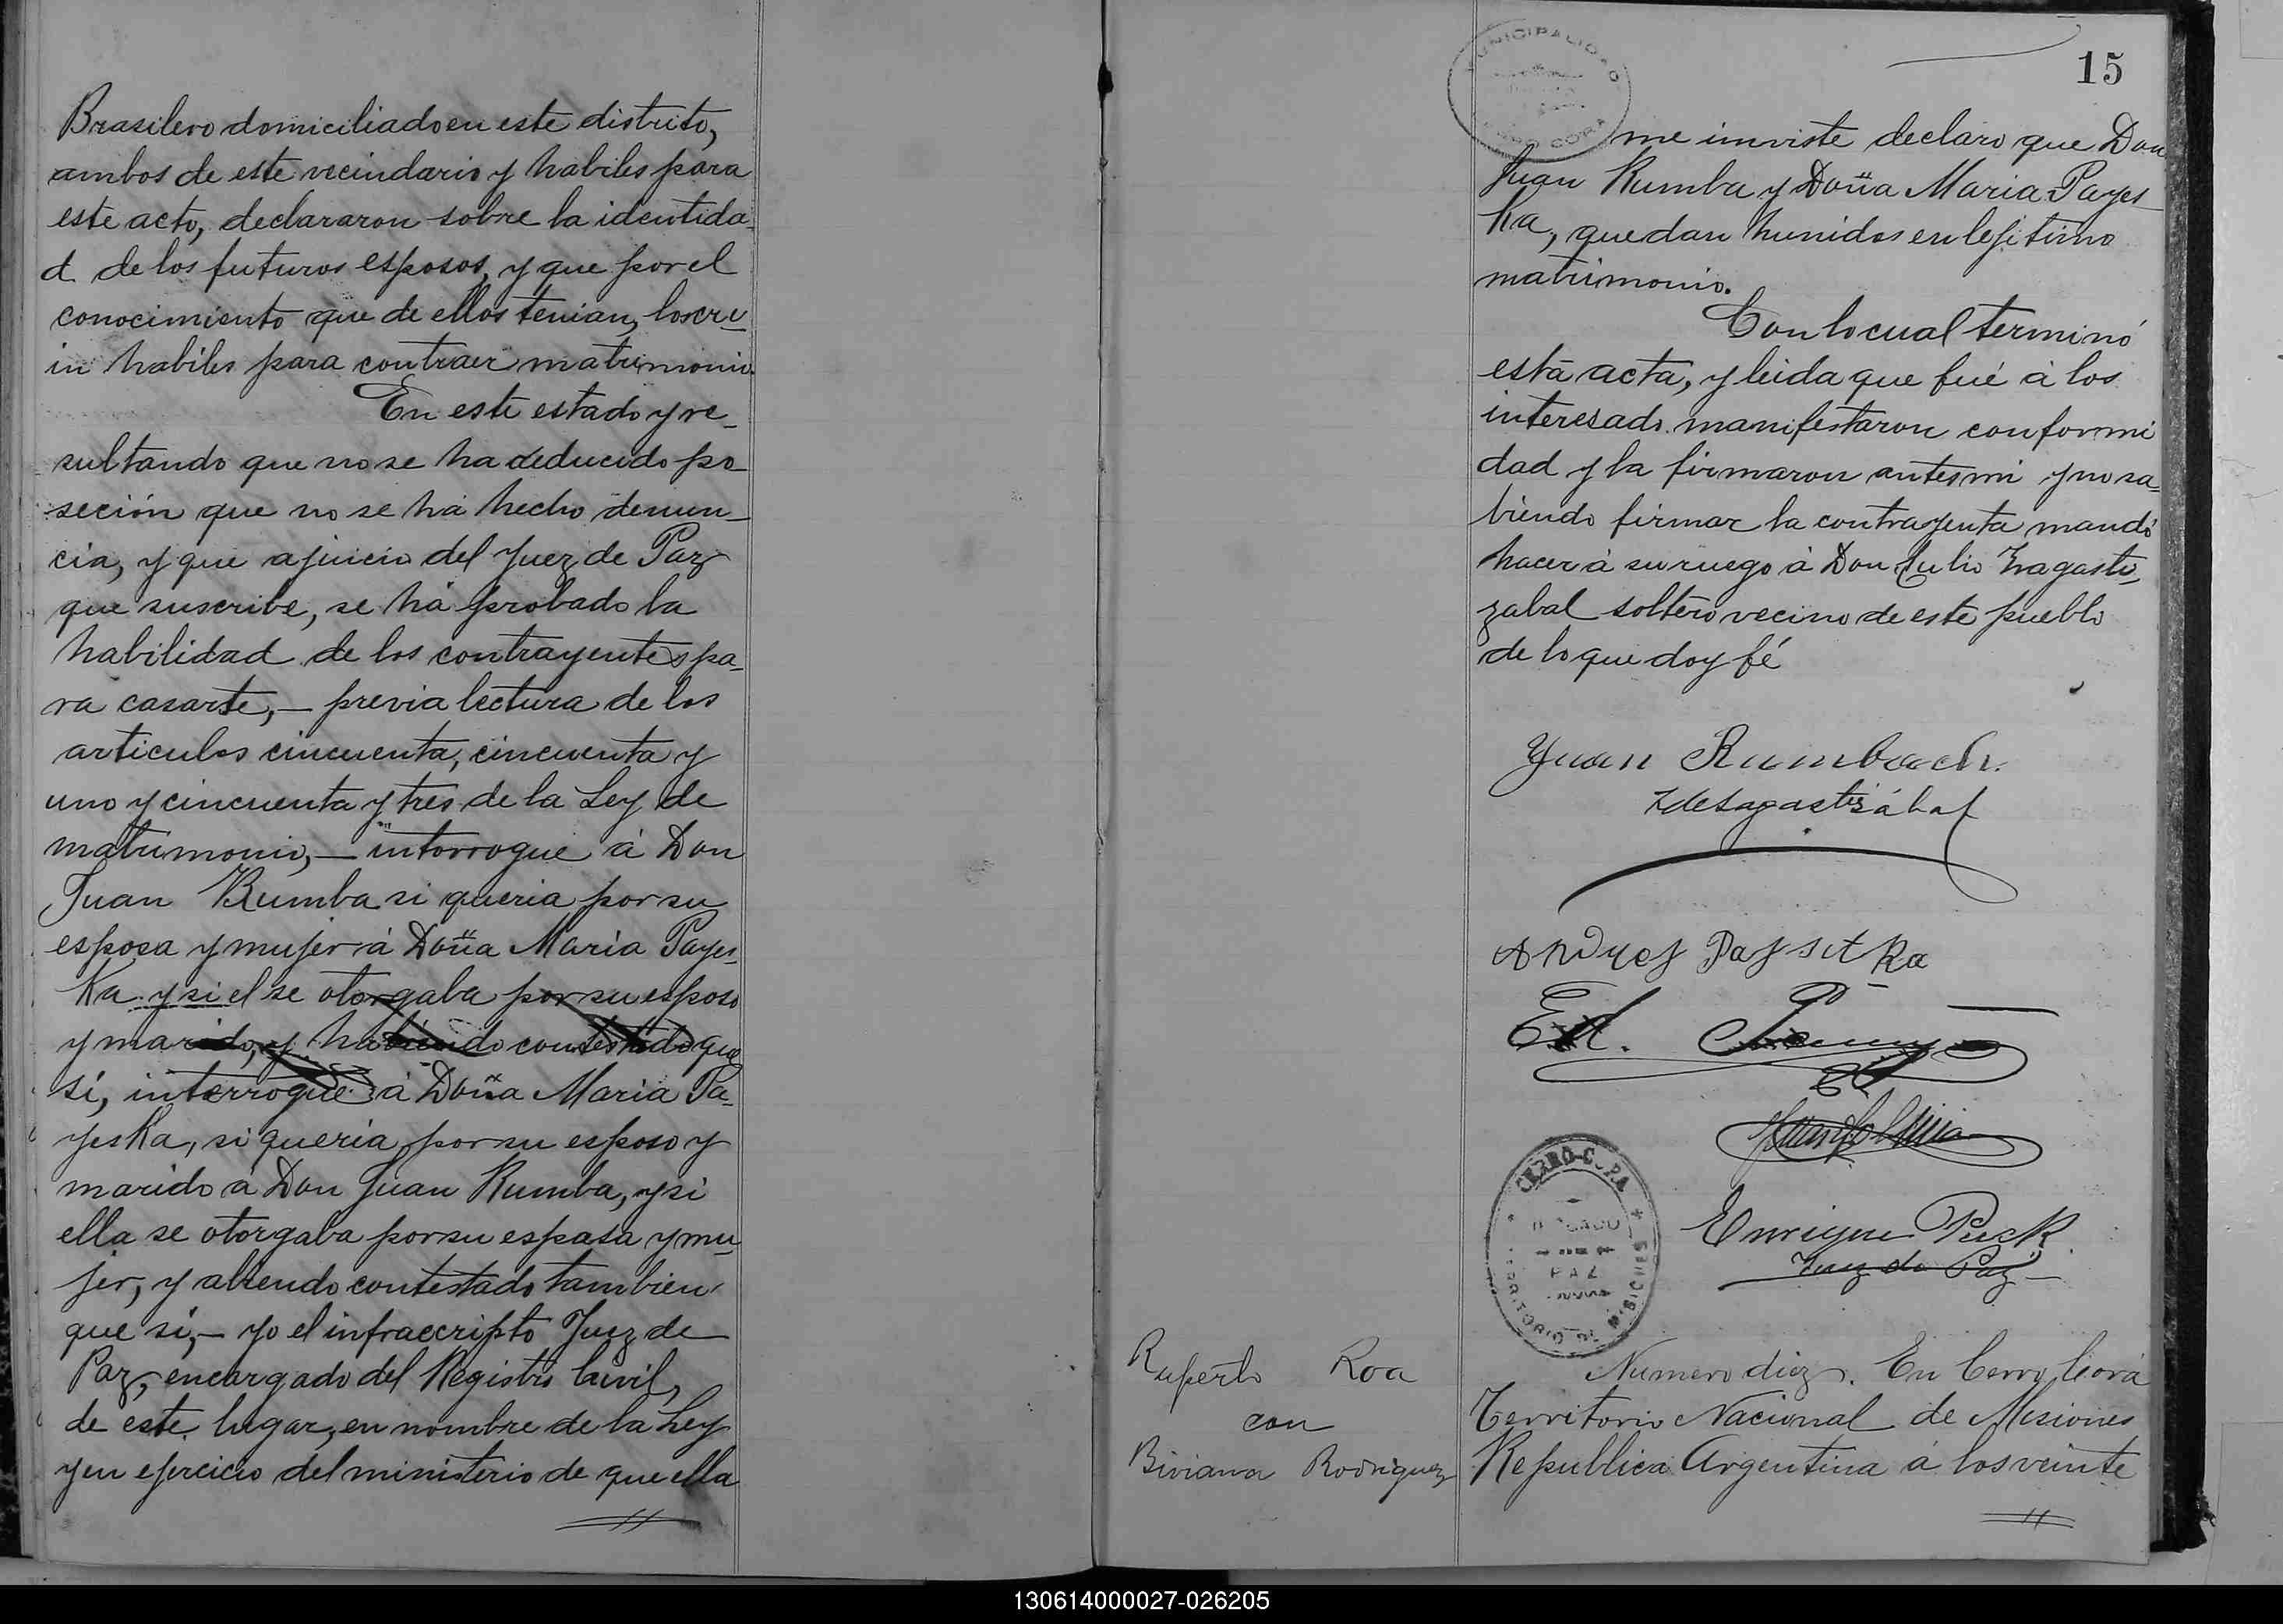 Brasilero domiciliado en este distrito,
ambos de este vecindario y habiles para
este acto, declararon sobre la identida
d de los futuros esposos, y que por el
conocimiento que de ellos tenian, los cre-
in habiles para contraer matrimonio.
En este estado y re-
sultando que no se ha deducido po-
seción que no se há hecho denun-
cia, y que a juicio del Juez de Paz
que suscribe, se há probado la
habilidad de los contrayentes pa-
ra casarte, — previa lectura de los
articulos cincuenta, cincuenta y
uno y cincuenta y tres de la Ley de
matrimonio, — intorrogue á Don
Juan Rumba si queria por su
esposa y mujer á Doña Maria Payes-
Ka y si el se otorgaba por su esposo
y marido, y habiendo contestado que
sí, interrogué á Doña Maria Pa-
yesKa, si queria por su esposo y
marido á Don Juan Rumba, y si
ella se otorgaba por su espasa y mu-
jer, y abiendo contestado tambien
que sí, — yo el infraccripto Juez de
Paz, encargado del Registro Civil,
de este lugar, en nombre de la Ley
y en ejercicio del ministerio de que ella
15
MUNICIPALIDAD
CORA
me inviste declaro que Don
Juan Rumba y Doña Maria Payes-
Ka, quedan hunidos en lejitimo
matrimonio.
Con lo cual terminó
está acta, y leida que fué á los
interesado manifestaron conformi
dad y la firmaron antes mi y no sa-
biendo firmar la contrayenta mandó
hacer á su ruego á Don Julio Zagasti-
zabal soltero vecino de este pueblo
de lo que doy fé
Juan Rumbach.
Andres Paysetka
Enrique Puck
Juez de Paz
CERRO-CORA
PAZ
TERRITORIO DE MISIONES
Ruperto Roa
con
Biviana Rodriguez
Numero diez. En Cerro Corá
Territorio Nacional de Misiones
Republica Argentina á los veinte
130614000027-026205